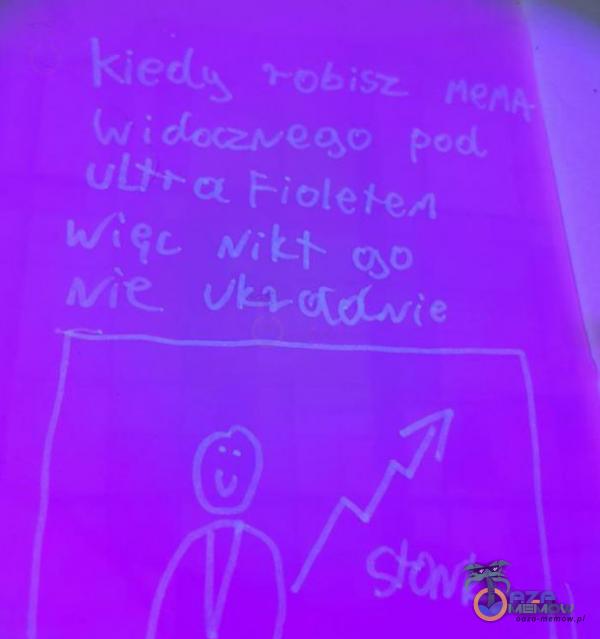 kiedy robisz MeMA
widocznego pod
ultra Fioletem
więc Nikt go
Nie ukradnie
ston
Oaza
MEMÓW
oaza-memow.pl